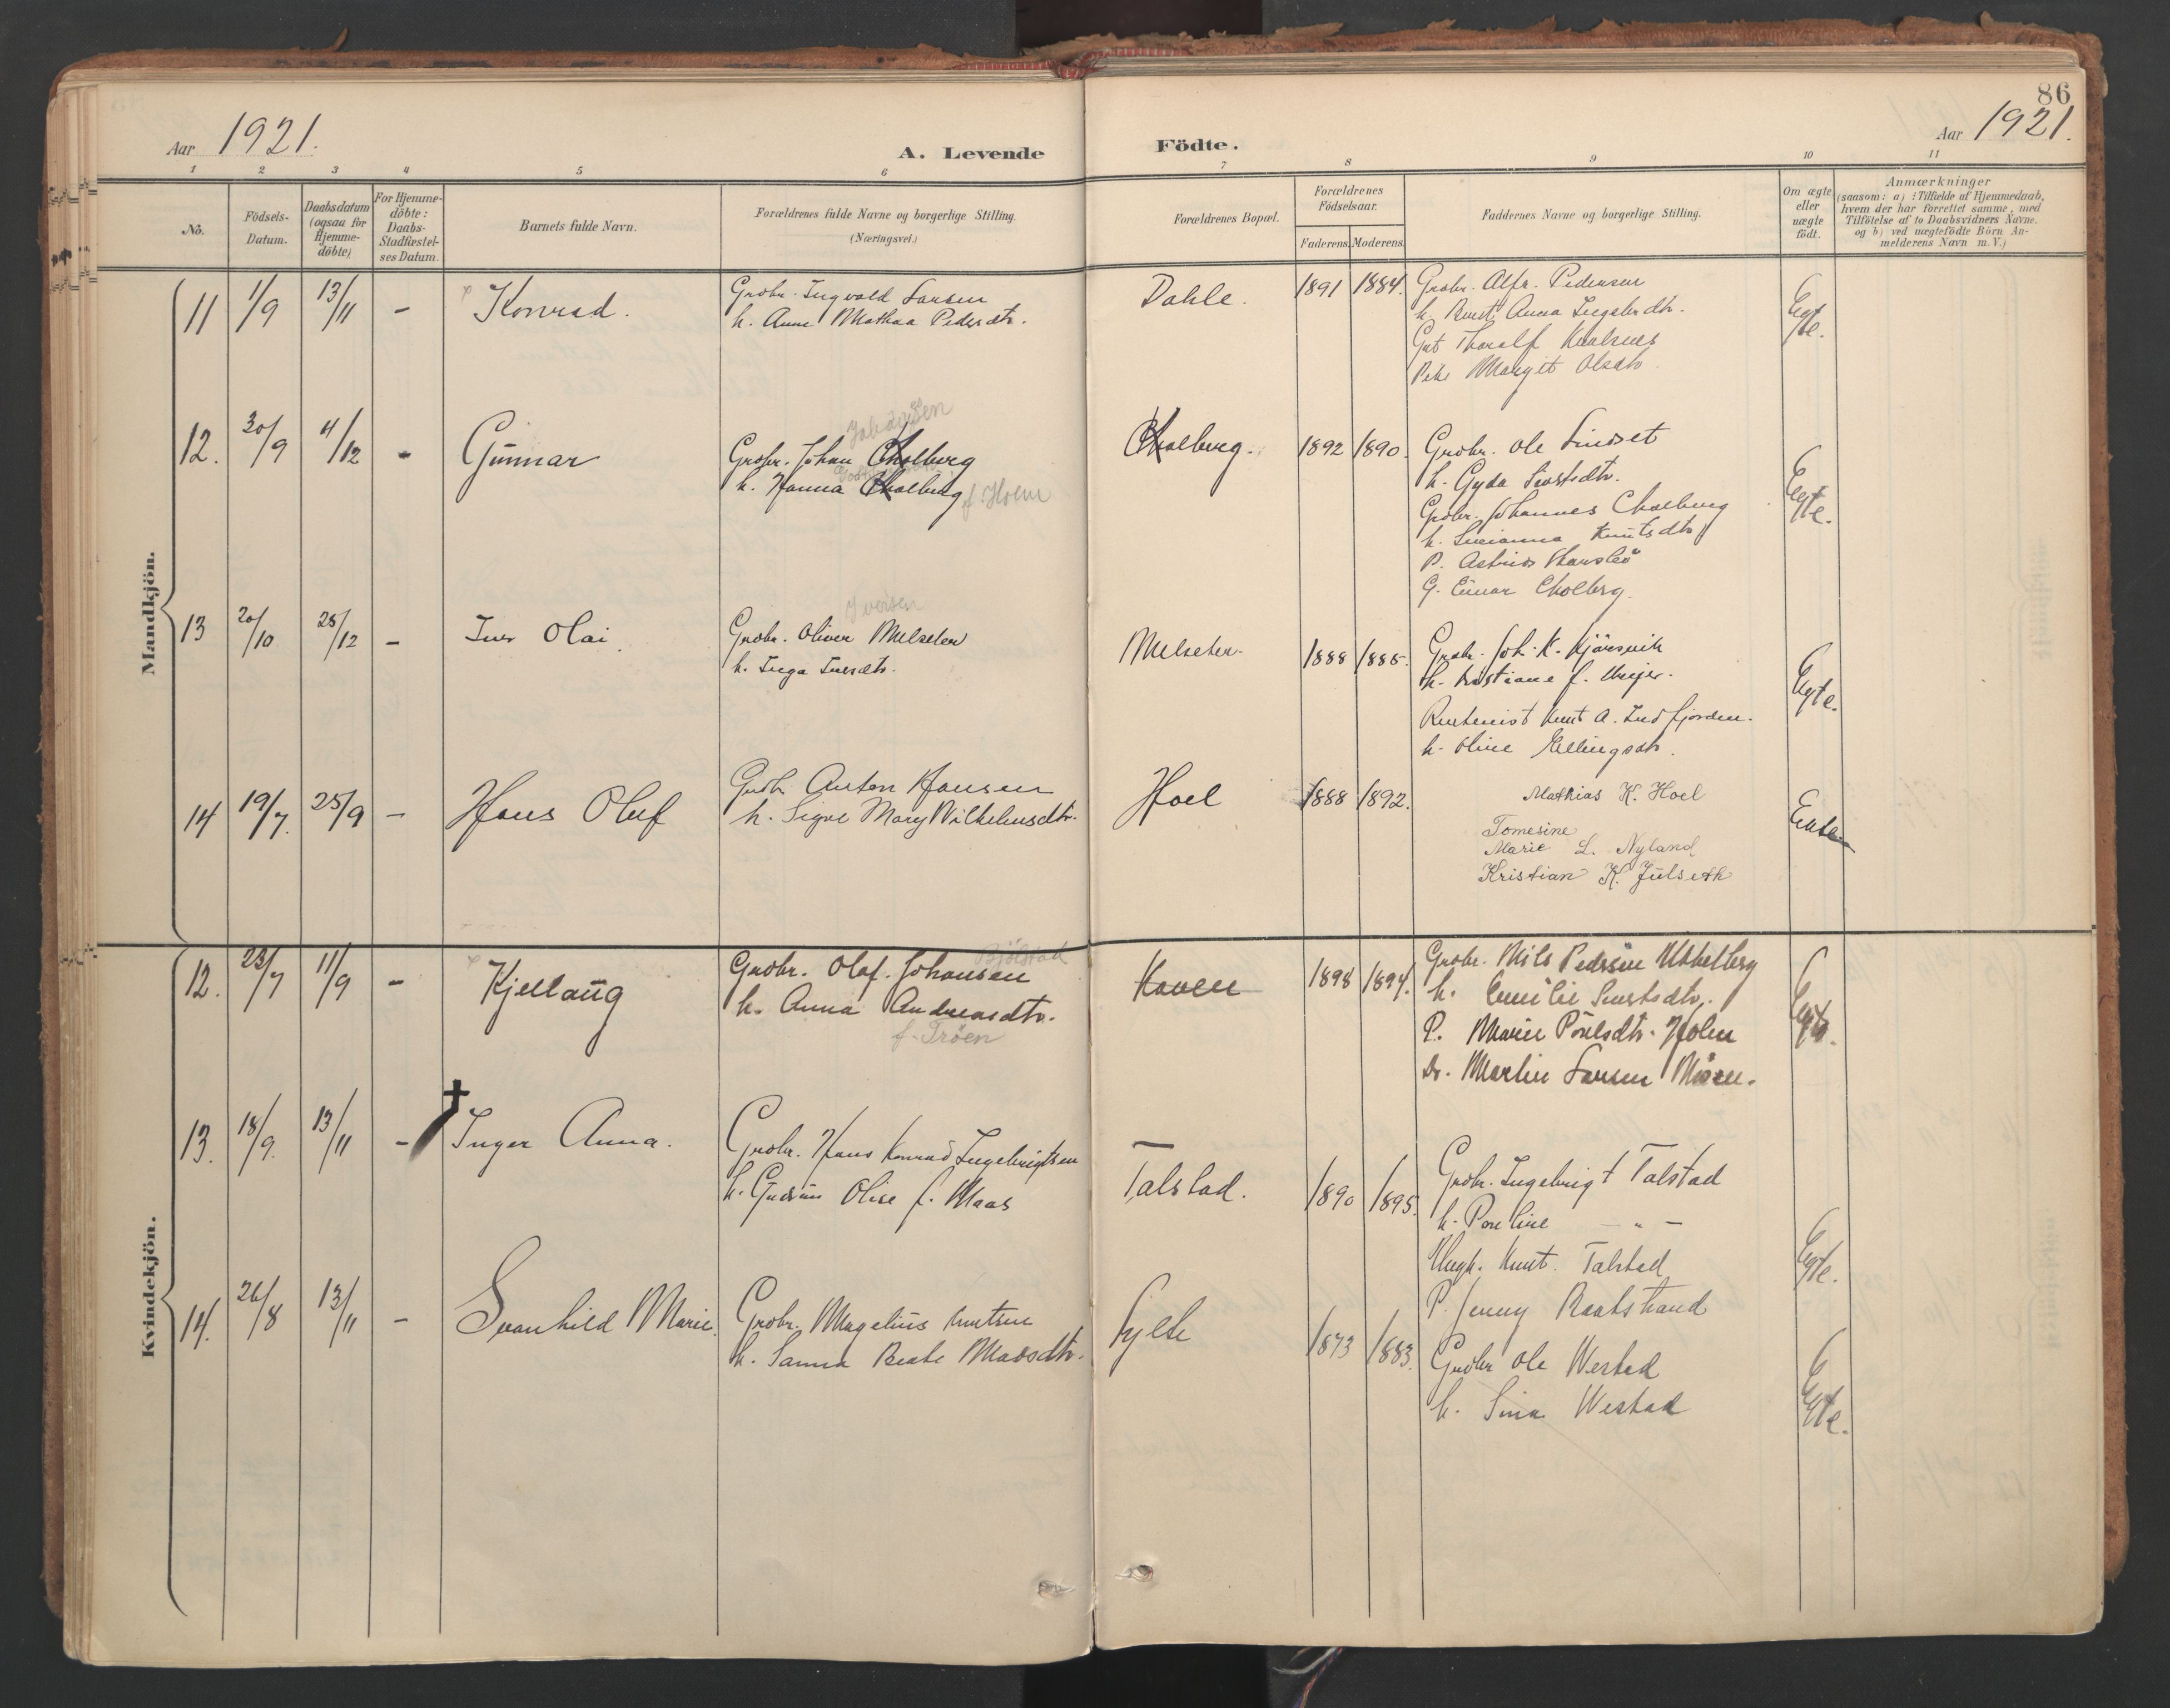 86
Aar 1921.
A. Levende Födte.
Aar 1921.
1 2 3 4 5 6 7 8 9 10 11
No.
Födsels-Datum.
Daabsdatum (ogsaa for Hjemme-döbte)
For Hjemme-döbte: Daabs-Stadfæstel-ses Datum.
Barnets fulde Navn.
Forældrenes fulde Navne og borgerlige Stilling. (Næringsvei.)
Forældrenes Bopæl.
Forældrenes Födselsaar.
Faderens. Moderens.
Faddernes Navne og borgerlige Stilling.
Om ægte eller uægte födt.
Anmærkninger
(saasom: a) i Tilfælde af Hjemmedaab,
hvem der har forrettet samme, med
Tilföielse af to Daabsvidners Navne.
og b) ved uægtefödte Börn An-
melderens Navn m. V.)
Mandkjön.
11 1/9 13/11 - Konrad.
Grobr. Ingvald Larsen
h. Anne Mathea Pedersdtr.
Dahle. 1891 1884.
Grobr. Alfr. Pedersen
h. Anna Ingebrdtr.
Gut Tharalf
Pike Margit Olsdtr.
Egte.
12. 30/9 4/12 - Gunnar
Johansen
Grobr. Johan Cholberg
h. Hanna Cholberg f. Holm
Cholberg. 1892 1890.
Grobr. Ole Lindset
h. Gyda Sivertsdtr.
Grobr. Johannes Cholberg
h. Knutsdtr
P. Astrid
G. Einar Cholberg.
Egte.
13 20/10 25/12 - Iver Olai.
Iversen
Grobr. Oliver Melseter
h. Inga Iversdtr.
Melseter. 1888 1885.
Grobr. Joh. K. Kjörsvik
h. Kristiane f.
Knut A. Indfjorden.
h. Oline Ellingsdtr.
Egte.
14 19/7. 25/9 - Hans Oluf
Grobr. Anton Hansen
h. Signe Mary Vilhelmsdtr.
Hoel 1888 1892.
Mathias K. Hoel
Tomesine
Marie L. Nyland
Kristian K. Julseth
Ekte
Kvindekjön.
12. 23/7 11/9 - Kjellaug
Bjölstad
Grobr. Olaf Johansen
h. Anna Andreasdtr.
f. Tröen
Haven 1898 1894.
Grobr. Nils Pedersen
h. Emilie Sivertsdtr.
P. Marie Poulsdtr. Holm
Martin Larsen
Egte.
13. 18/9. 13/11 - Inger Anna.
Grobr. Hans Konrad Ingebrigtsen
h. Gudrun Olise f. Maas
Talstad. 1890 1895.
Grobr. Ingebrigt Talstad
h. Pauline - " -
Ungk. Knut Talstad
P. Jenny Raabstrand
Egte.
14. 26/8 13/11 - Svanhild Marie.
Grobr. Magelius Knutsen
h. Sanna Beate Madsdtr.
Sylte 1873 1883.
Grobr Ole Westad
h. Sina Westad
Egte.